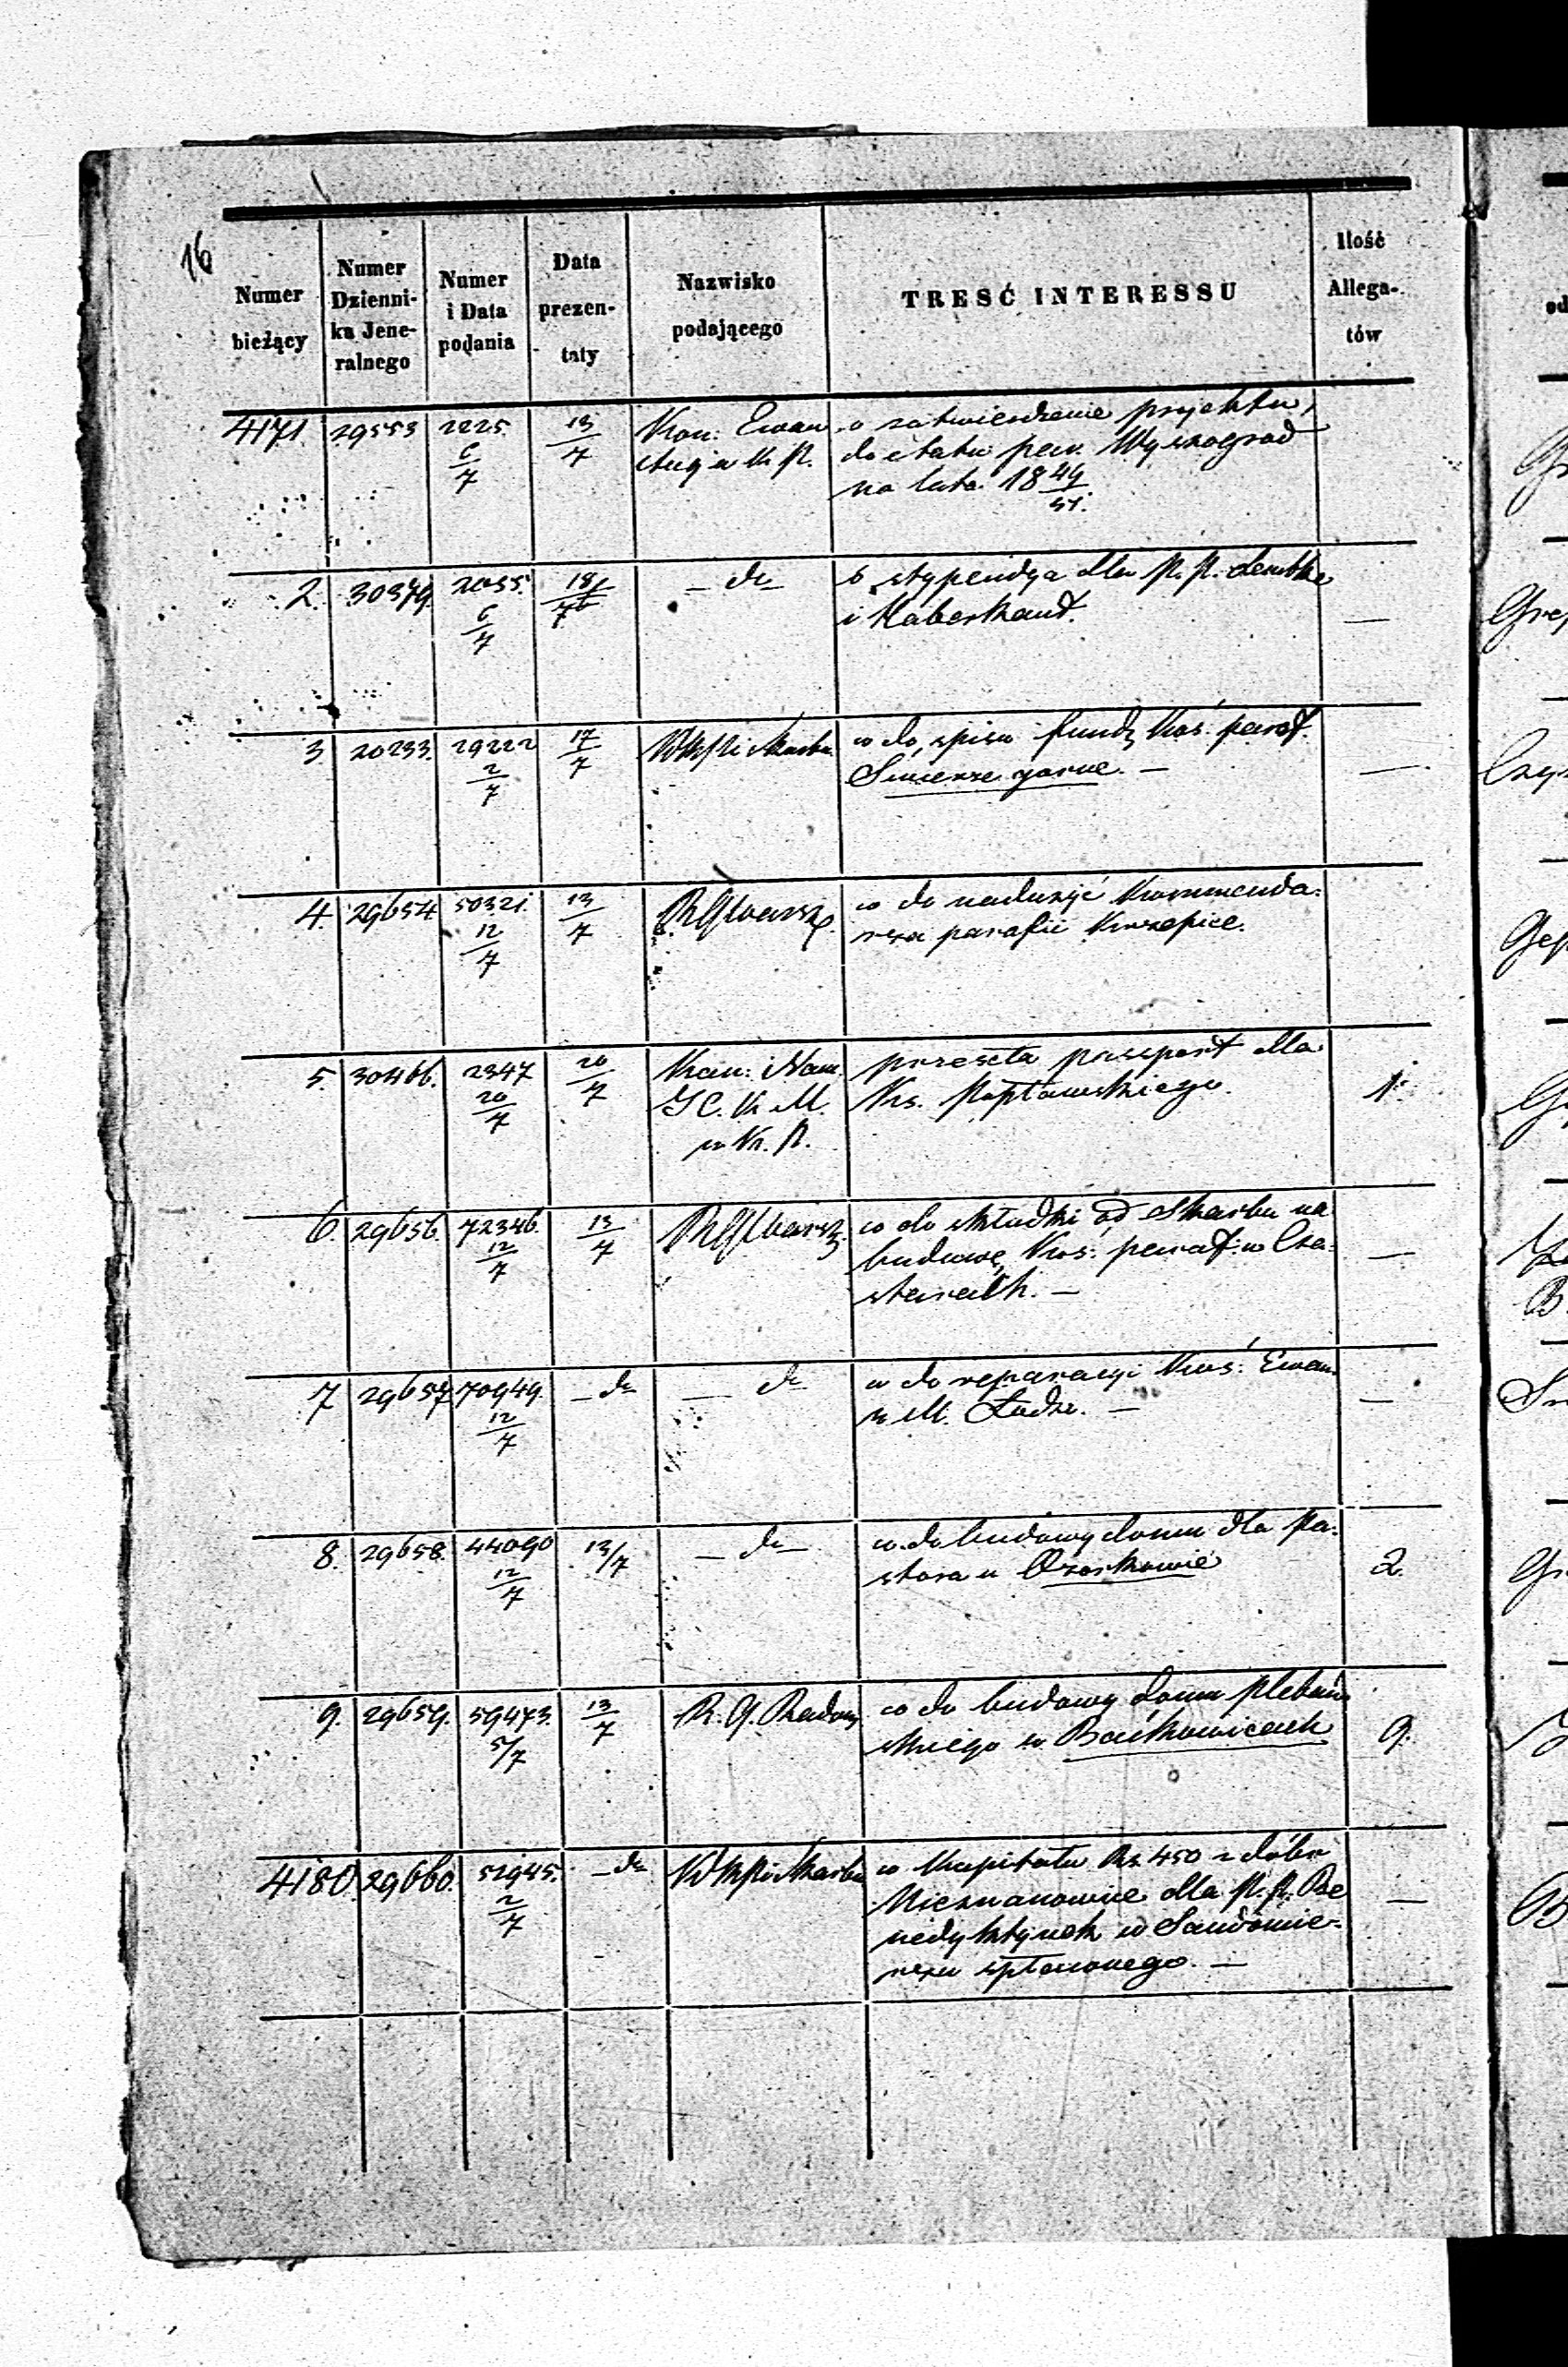 16
Numer bieżący
Numer Dzienni- ka Jene- ralnego
Numer i Data podania
Data prezen- taty
Nazwisko podającego
TREŚĆ INTERESSU
Ilość Allega- tów
4171. 29553 2225. 6/7 13/7 Kon: Ewan
o zatwierdzenie projektu
do etatu par. Wyszogród
na lata 18 49/51.
2. 30379. 2055. 6/7 18/7 — do —
o stypendya dla P. P. Lembke
i Haberkant. —
3 20233. 29222 2/7 17/7 Skarbu
co do spisu fund. Koś: paraf.
— —
4. 29654 50321. 12/7 13/7 RGWarsz.
co do nadużyć Kommenda-
rza parafii Krzepice.
5. 30466. 2347 20/7 20/7 Kan: Nam.
J C. K M.
w Kr. P.
przesyła passport dla
Ks. Popławskiego. 1.
6. 29656. 72346. 12/7 13/7 RGWarsz.
co do składki od Skarbu na
budowę Koś: paraf: w Cza-
starach. — —
7 29657 70949. 12/7 — do — do
co do reparacyi Koś: Ewan.
w M. Łodzi. — —
8. 29658. 44090 12/7 13/7 — do —
co do budowy domu dla Pa-
stora w Ozorkowie 2.
9. 29659. 59473. 5/7 13/7 R. G. Radom
co do budowy domu pleban
skiego w Baćkowicach 9.
4180. 29660. 52945. 2/7 — do Skarbu
o Kapitału Rs. 450 z dóbr
Nieznanowice dla P. P. Be
nedyktynek w Sandomie-
rzu spłaconego. — —